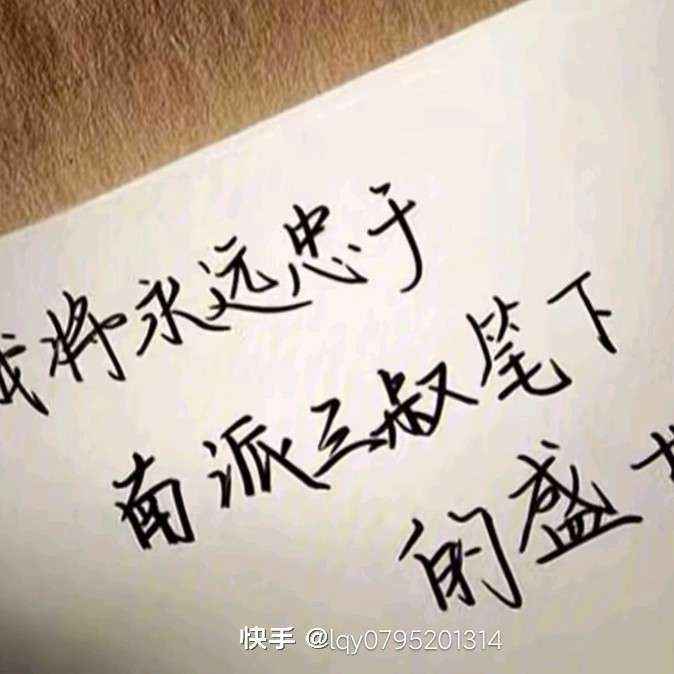 我将永远忠于
南派三叔笔下
的盛
快手 @lqy0795201314